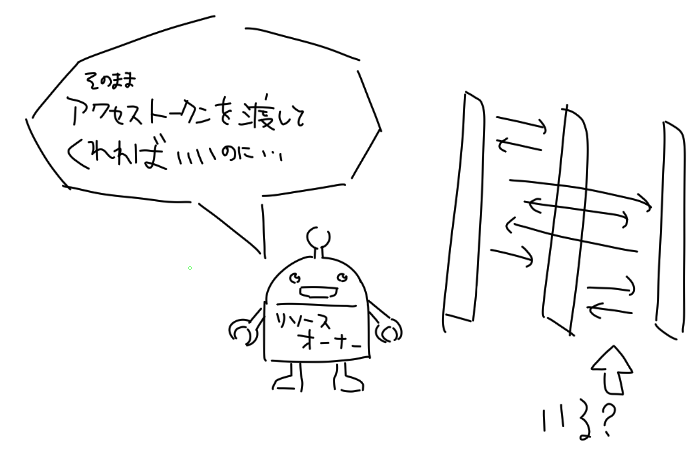 そのまま
アクセストークンを渡して
くれればいいのに…
リソース
オーナー
いる?